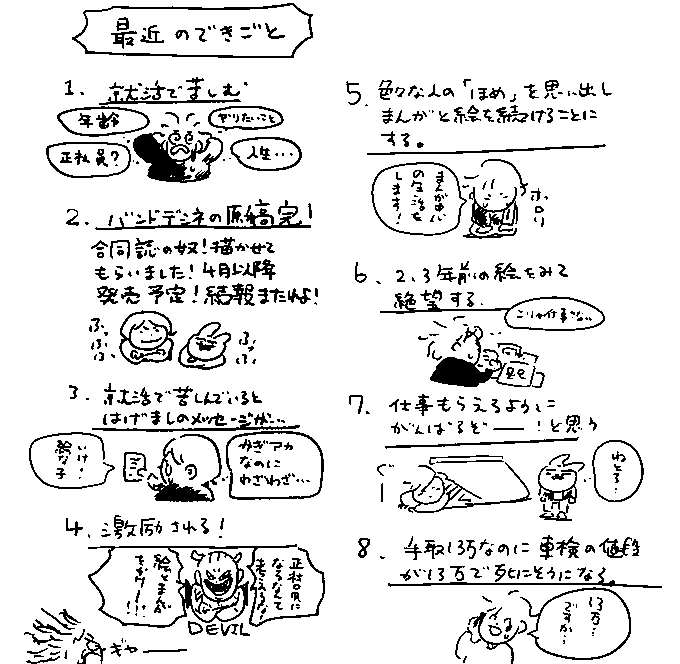 最近のできごと
1. 就活で苦しむ
年齢
やりたいこと
正社員?
人生…
2. バンドデシネの原稿完!
合同誌の奴!描かせて
もらいました!4月以降
発売予定!続報またれよ!
ふ、ふ、ふ、
ふ、ふ、
3. 就活で苦しんでいると
はげましのメッセージが…
いけ!
かぎアカ
なのに
わざわざ…
4. 激励される!
正社員に
ならなくて
絵とまんが
DEVIL
ギャー
5. 色々な人の「ほめ」を思い出し
まんがと絵を続けることに
する。
まんが中心
の生活を
します!
ホロリ
6. 2、3年前の絵をみて
絶望する。
7. 仕事もらえるように
がんばるぞー!と思う
ぐー
ねとる!
8. 手取13万なのに車検の値段
が13万で死にそうになる。
13万…
ですか…